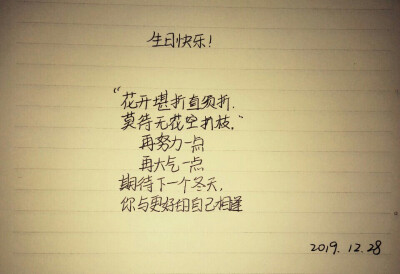 生日快乐!
“花开堪折直须折.
莫待无花空折枝,”
再努力一点
再大气一点
期待下一个冬天,
你与更好的自己相逢
2019.12.28